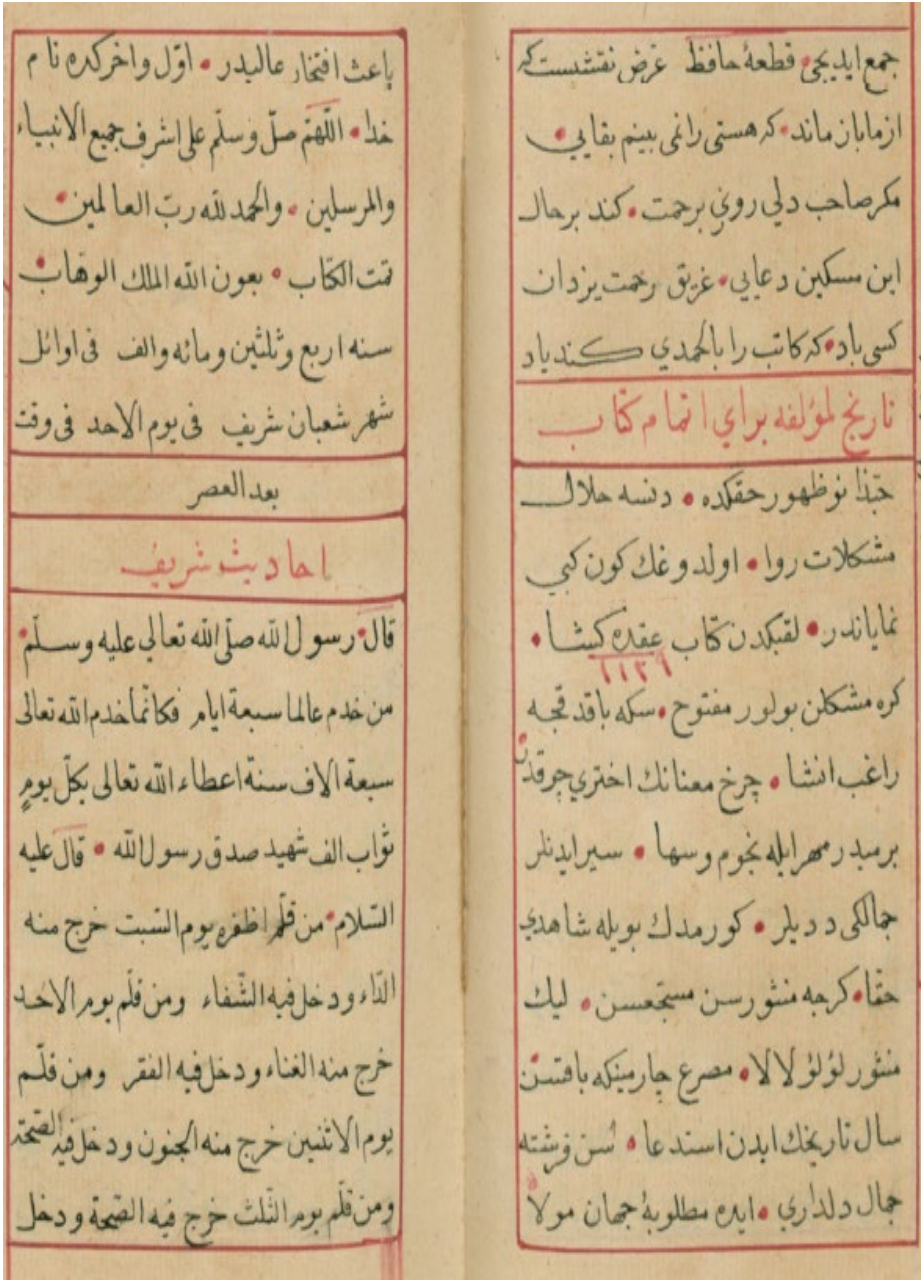 جمع ایدیجی قطعۀ حافظ غرض نقشست که
ازما باز ماند که هستی را نمی بینم بقایی
مکر صاحب دلی روزی برحمت کند برحال
این مسکین دعایی غریق رحمت یزدان
کسی باد که کاتب را بالحمدی کند یاد
تاریخ لمؤلفه برای اتمام کتاب
حبّذا نو ظهور حقکده دنسه حلال
مشکلات روا اولدوغك کون کبی
نمایاندر لقبکدن کتاب عقده کشا
١١٢٩
کره مشکلن بولور مفتوح سکه باقدقجه
راغب انشا چرخ معنانك اختری چوقدن
برمیدر مهر ایله نجوم وسها سیر ایدنلر
جمالکی ددیلر کورمدك بویله شاهدی
حقا کرجه منثورسن مسجعسن لیك
منثور لؤلؤ لالا مصرع چارمینکه باقتسن
سال تاریخك ایدن استدعا سن فرشته
جمال دلداری ایده مطلوبۀ جهان مولا
باعث افتخار عالیدر اوّل واخرکده نام
خدا اللّهمّ صلّ وسلّم علی اشرف جمیع الانبیاء
والمرسلین والحمد لله ربّ العالمین
تمت الکتاب بعون الله الملك الوهّاب
سنه اربع وثلثین ومائه والف فی اوائل
شهر شعبان شریف فی یوم الاحد فی وقت
بعد العصر
احادیث شریف
قال رسول الله صلّی الله تعالی علیه وسلّم
من خدم عالما سبعة ایام فکانّما خدم الله تعالی
سبعة الاف سنة اعطاء الله تعالی بکلّ یومٍ
ثواب الف شهید صدق رسول الله قال علیه
السّلام من قلّم اظفره یوم السّبت خرج منه
الدّاء ودخل فیه الشّفاء ومن قلّم یوم الاحد
خرج منه الغناء ودخل فیه الفقر ومن قلّم
یوم الاثنین خرج منه الجنون ودخل فیه الصّحّة
ومن قلّم یوم الثّلث خرج فیه الصّحّة ودخل